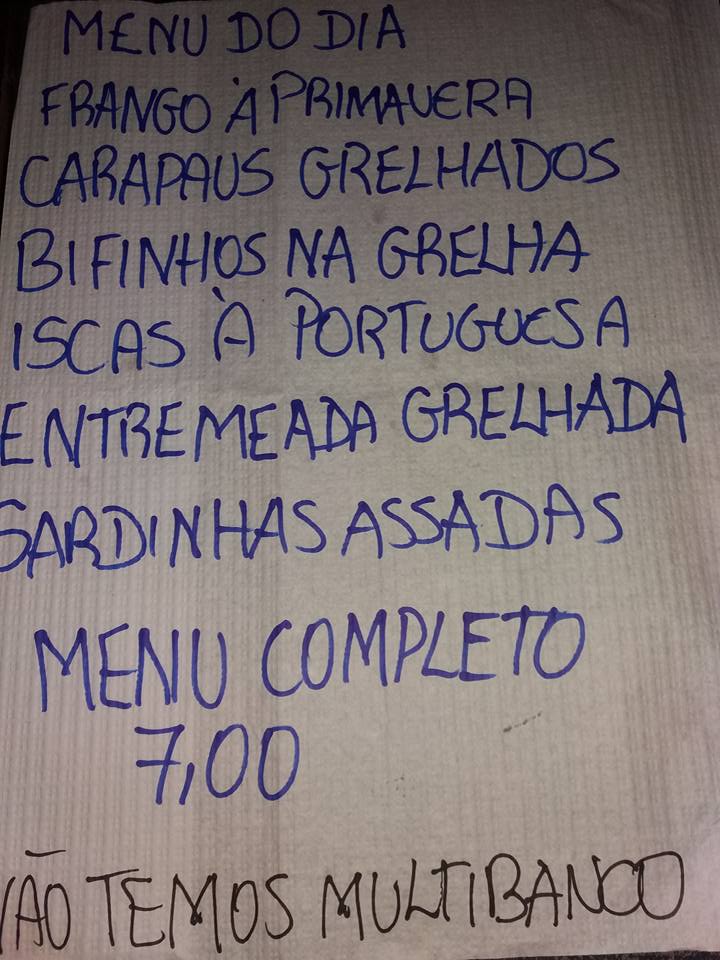 MENU DO DIA
FRANGO À PRIMAVERA
CARAPAUS GRELHADOS
BIFINHOS NA GRELHA
ISCAS À PORTUGUESA
ENTREMEADA GRELHADA
SARDINHAS ASSADAS
MENU COMPLETO
7,00
NÃO TEMOS MULTIBANCO